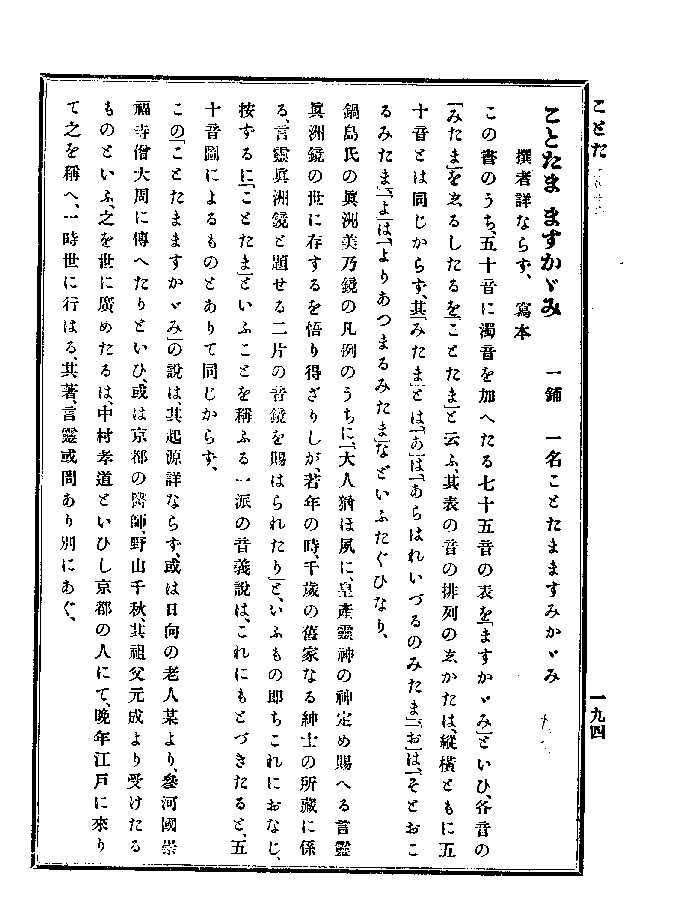 ことた
一九四
ことたま ますかゞみ　一鋪　一名ことたまますみかゞみ
撰者詳ならず、寫本
この書のうち、五十音に濁音を加へたる七十五音の表を「ますかゞみ」といひ、各音の
「みたま」をゑるしたるを「ことたま」と云ふ、其表の音の排列のゑかたは、縱横ともに五
十音とは同じからず、其「みたま」とは、「あ」は「あらはれいづるのみたま」、「お」は、「そとおこ
るみたま」、「よ」は「よりあつまるみたま」などいふたぐひなり、
鍋島氏の眞洲美乃鏡の凡例のうちに、「大人猶ほ夙に、皇產靈神の神定め賜へる言靈
眞洲鏡の世に存するを悟り得ざりしが、若年の時、千歲の舊家なる紳士の所藏に係
る、言靈眞洲鏡と題せる二片の音鏡を賜はられたり」と、いふもの卽ちこれにおなじ、
按ずるに「ことたま」といふことを稱ふる一派の音義說は、これにもとづきたると、五
十音圖によるものとありて同じからず、
この「ことたまますかゞみ」の說は、其起源詳ならず、或は日向の老人某より、參河國崇
福寺僧大周に傳へたりといひ、或は京都の醫師、野山千秋、其祖父元成より受けたる
ものといふ、之を世に廣めたるは、中村孝道といひし京都の人にて、晩年江戶に來り
て之を稱へ、一時世に行はる、其著、言靈或問あり別にあぐ、